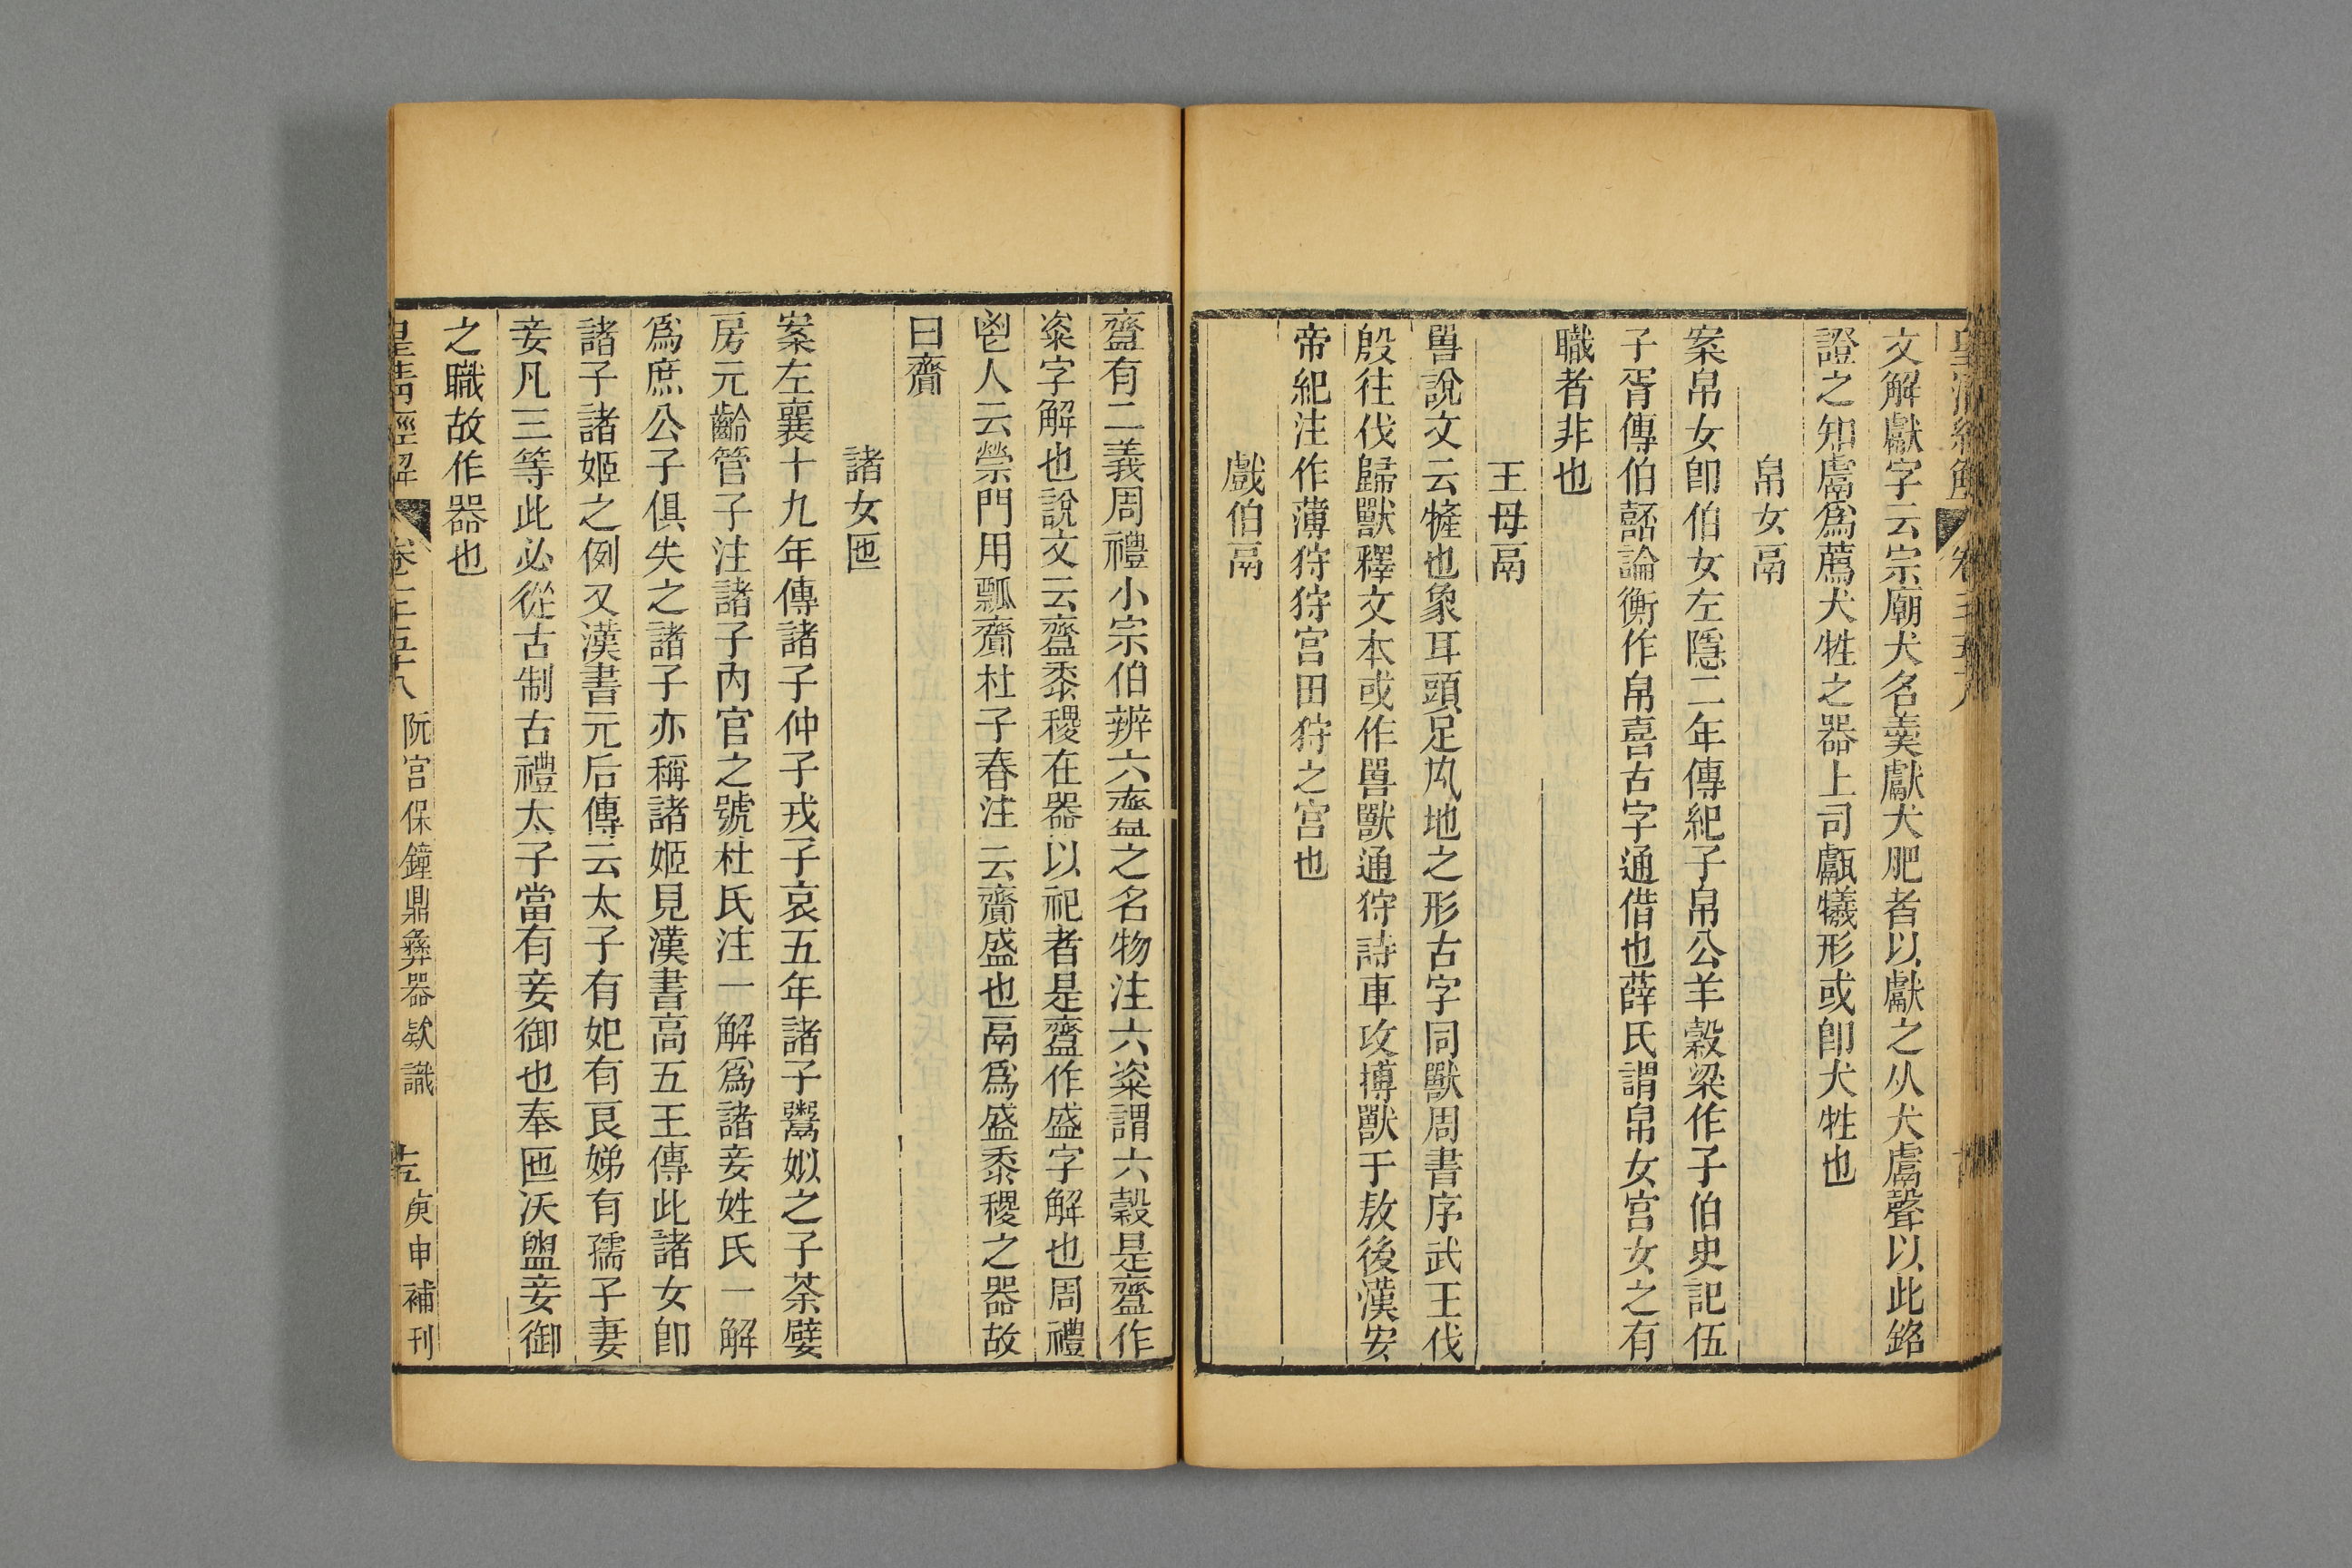 文解獻字云宗廟犬名羹獻犬肥者以獻之从犬鬳聲以此銘
證之知鬳爲薦犬牲之器上司甗犧形或卽犬牲也
帛女鬲
案帛女卽伯女左隱二年傳紀子帛公羊穀梁作子伯史記伍
子胥傳伯嚭論衡作帛喜古字通借也薛氏謂帛女宮女之有
職者非也
王母鬲
嘼說文云㹌也象耳頭足厹地之形古字同獸周書序武王伐
殷往伐歸獸釋文本或作嘼獸通狩詩車攻搏獸于敖後漢安
帝紀注作薄狩狩宮田狩之宮也
戲伯鬲
齍有二義周禮小宗伯辨六齍之名物注六粢謂六穀是齍作
粢字解也說文云齍黍稷在器以祀者是齍作盛字解也周禮
鬯人云禜門用瓢齎杜子春注云齎盛也鬲爲盛黍稷之器故
曰齎
諸女匜
案左襄十九年傳諸子仲子戎子哀五年諸子鬻姒之子荼嬖
房元齡管子注諸子內官之號杜氏注一解爲諸妾姓氏一解
爲庶公子俱失之諸子亦稱諸姬見漢書高五王傳此諸女卽
諸子諸姬之例又漢書元后傳云太子有妃有良娣有孺子妻
妾凡三等此必從古制古禮太子當有妾御也奉匜沃盥妾御
之職故作器也
皇淸經解 卷一千五十八 阮宮保鐘鼎彝器欵識 庚申補刊